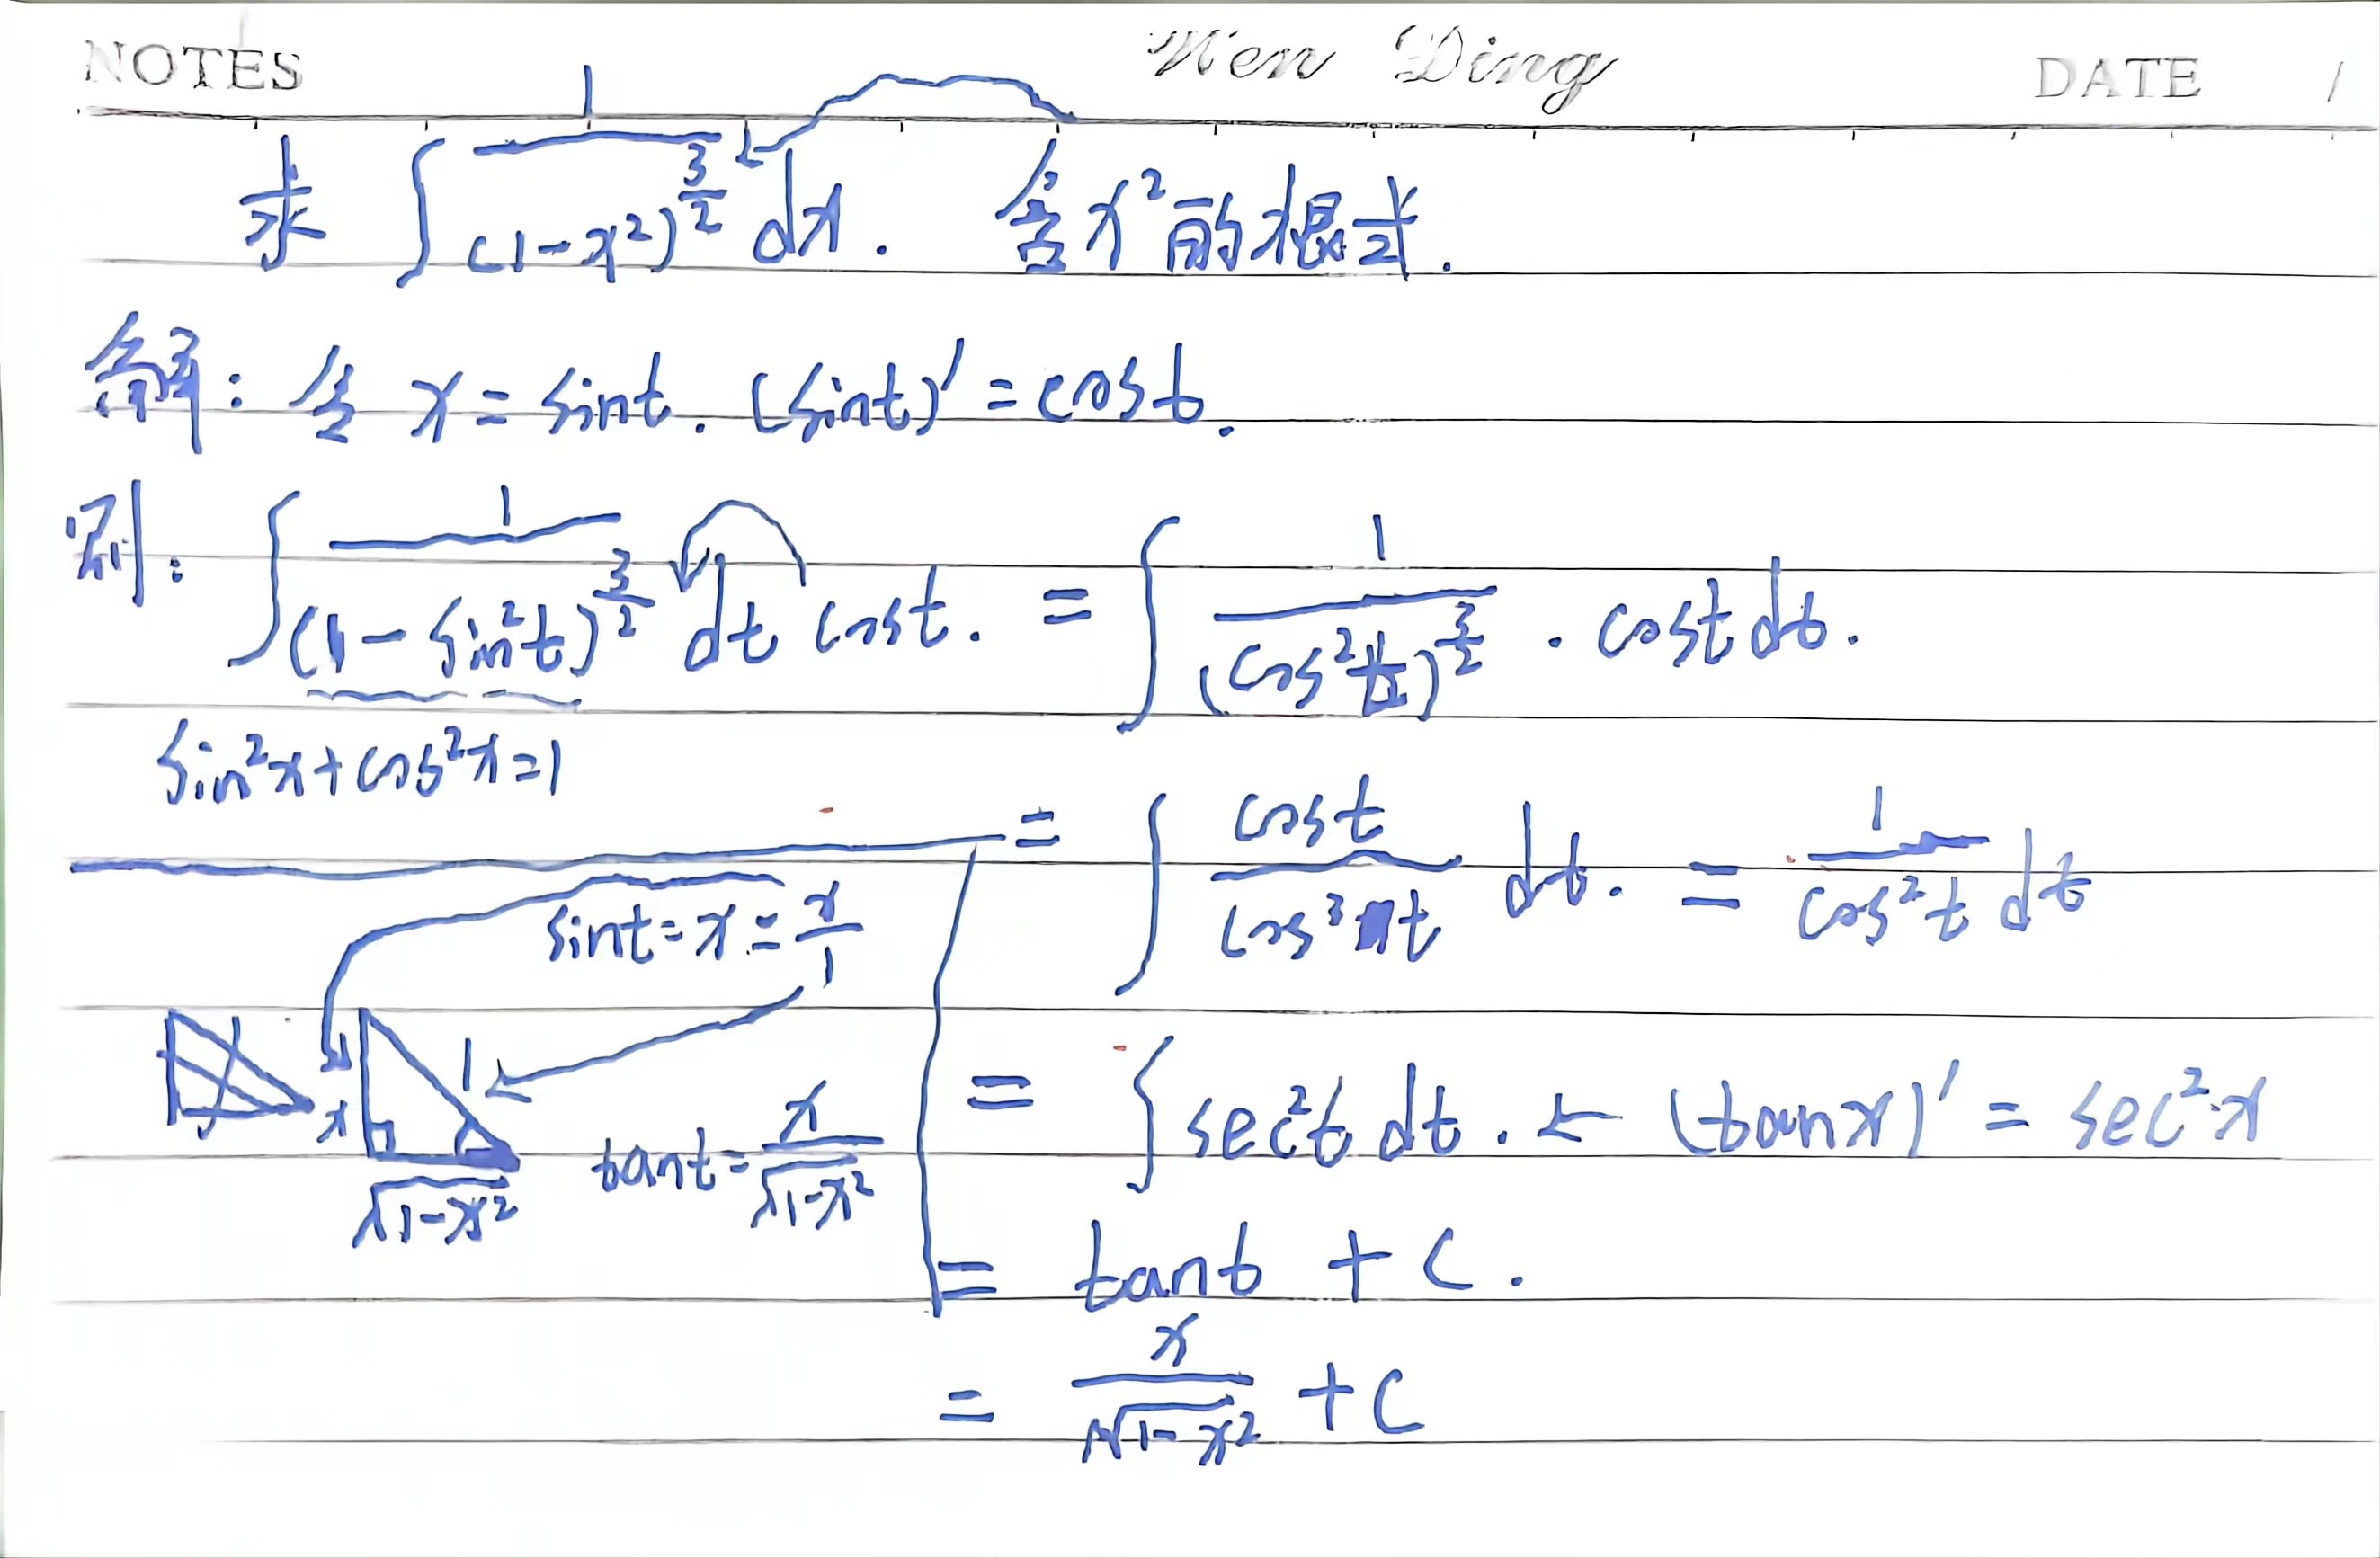 NOTES Wen Ding DATE /
求 ∫ 1/(1-x²)^(3/2) dx. 含x²的根式.
解: 令 x = sint. (sint)' = cost.
则: ∫ 1/(1-sin²t)^(3/2) dt cost. = ∫ 1/(cos²t)^(3/2) · cost dt.
sin²x+cos²x=1
= ∫ cost/cos³t dt. = 1/cos²t dt
sint=x=x/1
x 1 √(1-x²) tant=x/√(1-x²)
= ∫ sec²t dt. ← (tanx)' = sec²x
= tant + C.
= x/√(1-x²) + C